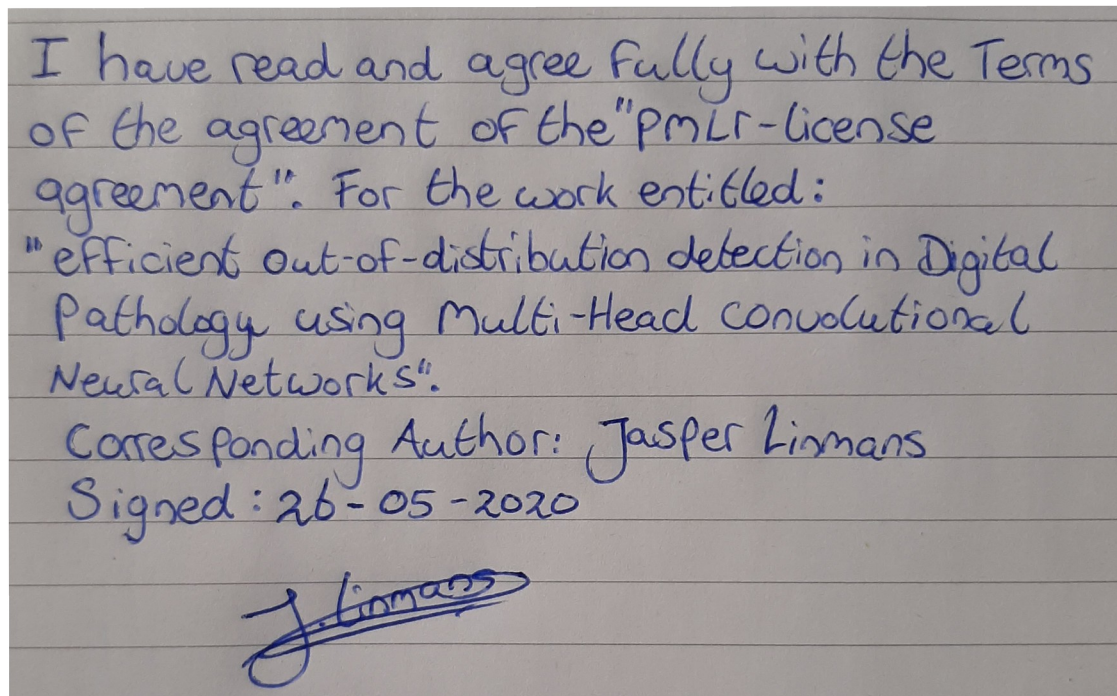 I have read and agree fully with the Terms
of the agreement of the "pmLr-license
agreement". For the work entitled:
"efficient out-of-distribution detection in Digital
Pathology using Multi-Head convolutional
Neural Networks".
Corresponding Author: Jasper Linmans
Signed: 26-05-2020
J. Linmans